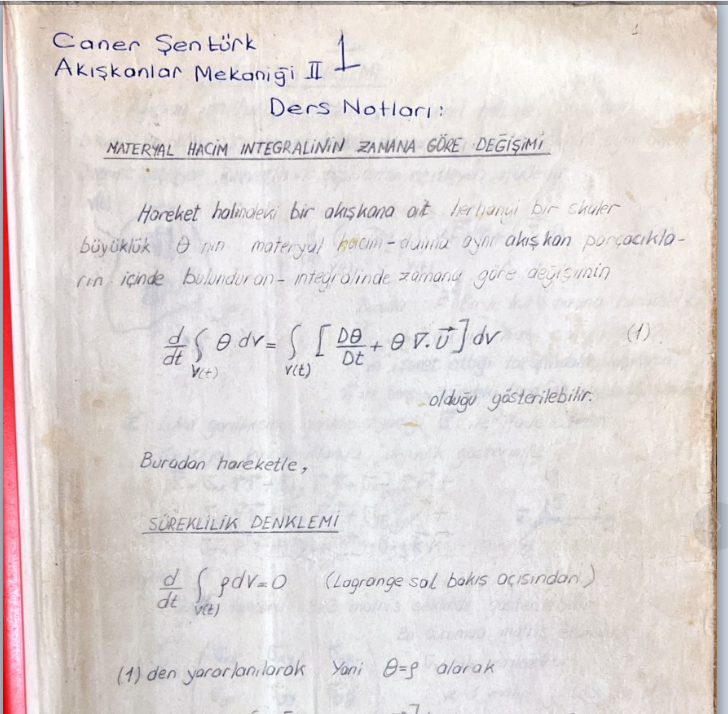 1
Caner Şentürk 1
Akışkanlar Mekaniği II
Ders Notları:
MATERYAL HACİM INTEGRALİNİN ZAMANA GÖRE DEĞİŞİMİ
Hareket halindeki bir akışkana ait herhangi bir skaler
büyüklük θ nın materyal hacim-daima aynı akışkan parçacıkla-
rın içinde bulunduran- integralinde zamana göre değişimin
d/dt ∫V(t) θ dv = ∫V(t) [ Dθ/Dt + θ ∇.U⃗ ] dv (1)
olduğu gösterilebilir.
Buradan hareketle,
SÜREKLİLİK DENKLEMİ
d/dt ∫V(t) ρdv=0 (Lagrange sal bakış açısından)
(1) den yararlanılarak Yani θ=ρ alarak